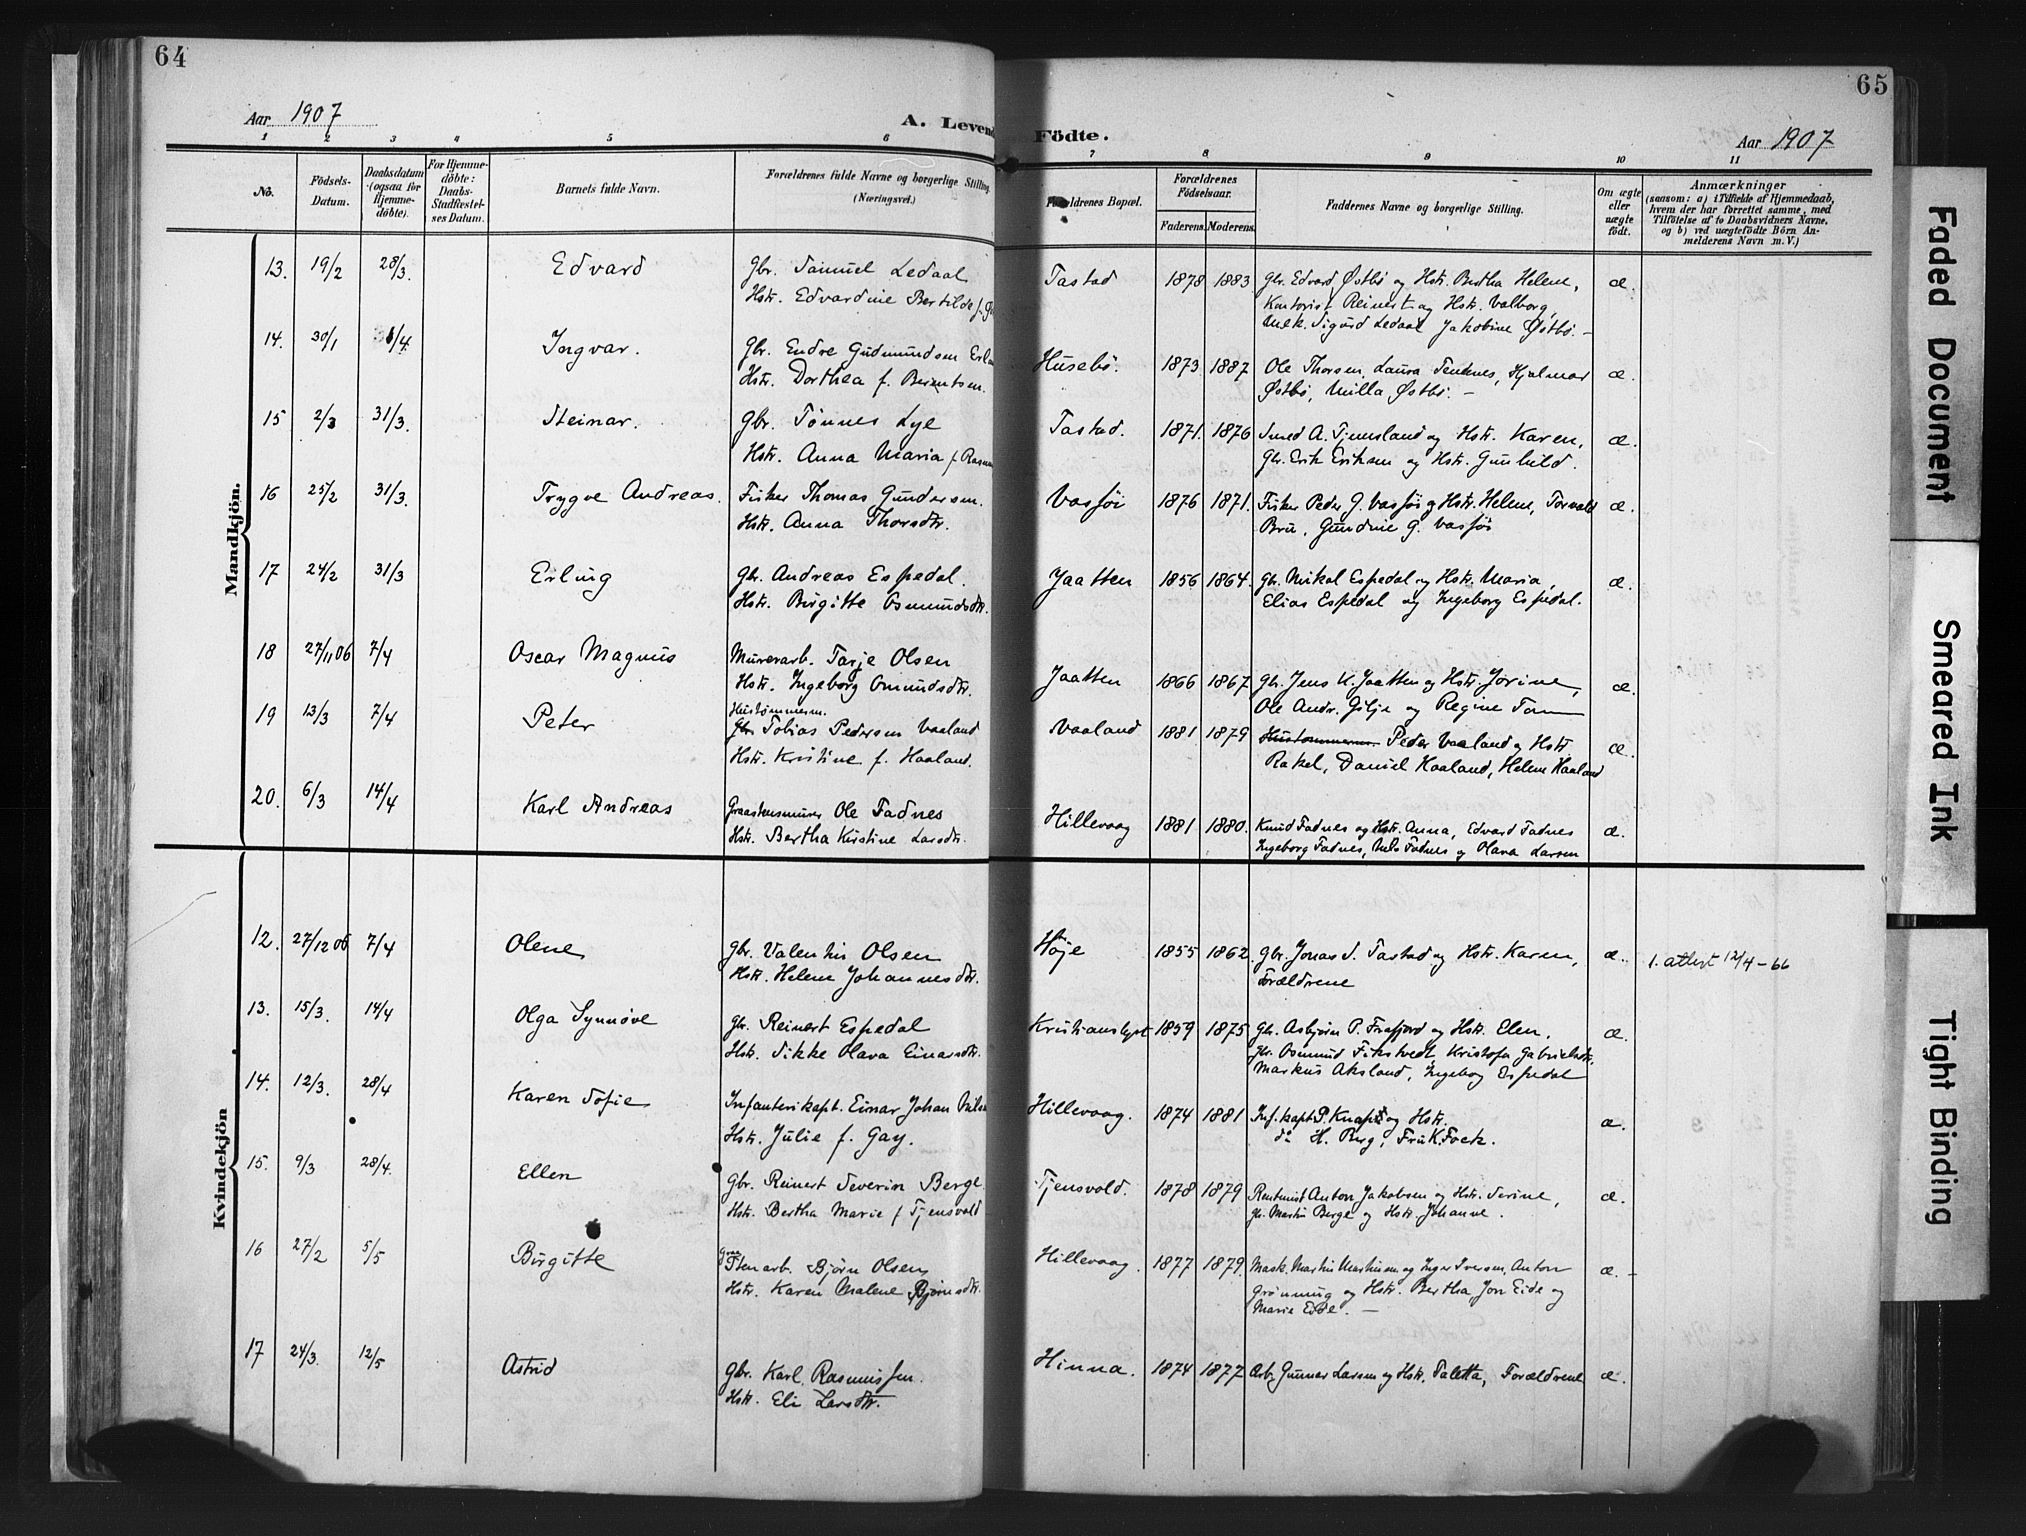 64
Aar 1907
A. Levend
1 2 3 4 5 6
No.
Födsels-Datum.
Daabsdatum (ogsaa för Hjemme-döbte).
For Hjemme-döbte: Daabs-Stadfæstel-ses Datum.
Barnets fulde Navn.
Forældrenes fulde Navne og borgerlige Stilling. (Næringsvei.)
Mandkjön.
13. 19/2 28/3. Edvard Gbr. Samuel Ledaal
Hstr. Edvardine Bertilde f.
14. 30/1 1/4 Ingvar. Gbr. Endre Gudmundsen
Hstr. Dorthea f. Berentsen.
15 2/3 31/3. Steinar. Gbr. Tönnes Lye
Hstr. Anna Maria f. Rasm
16 25/2 31/3. Trygve Andreas. Fisker Thomas Gundersen.
Hstr. Anna Thorsdtr.
17 24/2 31/3 Erling Gbr. Andreas Espedal.
Hstr. Birgitte Osmundsdtr.
18 27/11 06 7/4 Oscar Magnus Murerarb. Tarje Olsen
Hstr. Ingeborg Omundsdtr.
19 13/3 7/4 Peter Hustømmerm.
Gbr. Tobias Pedersen Vaaland
Hstr. Kristine f. Haaland.
20. 6/3 14/4 Karl Andreas Graastensmurer Ole Fadnes
Hstr. Bertha Kirstine Larsdtr.
Kvindekjön
12. 27/12 06 7/4 Olene Gbr. Valentin Olsen
Hstr. Helene Johannesdtr.
13. 15/3. 14/4 Olga Synnöve Gbr. Reinert Espedal
Hstr. Sikke Olava Einarsdtr.
14. 12/3. 28/4 Karen Sofie Infanterikapt. Einar Johan
Hstr. Julie f. Gay.
15. 9/3 28/4. Ellen Gbr. Reinert Severin Berge
Hstr. Bertha Marie f Tjensvold
16 27/2 5/5 Birgitte Graa
Stenarb. Björn Olsen
Hstr. Karen Malene Björnsdtr.
17 24/3. 12/5 Astrid Gbr. Karl Rasmussen.
Hstr. Eli Larsdtr.
65
Födte.
Aar 1907
7 8 9 10 11
Forældrenes Bopæl.
Forældrenes Födselsaar.
Faderens. Moderens.
Faddernes Navne og borgerlige Stilling.
Om ægte eller uægte födt.
Anmærkninger
(saasom: a) i Tilfælde af Hjemmedaab,
hvem der har forrettet samme, med
Tilföielse af to Daabsvidners Navne,
og b) ved uægtefödte Börn An-
melderens Navn m. V.)
Tastad 1878 1883. Gbr. Edvard Østbö og Hstr. Bertha Helene, æ.
Kontorist Reinert og Hstr. Valborg,
Mek. Sigurd Ledaal Jakobine Østbö. –
Husebö. 1873 1887 Ole Thorsen, Laura Tenknes, Hjalmar æ.
Østbö, Milla Østbö. –
Tastad. 1871. 1876 Smed A. Tjemsland og Hstr. Karen, æ.
Gbr. Erik Eriksen og Hstr. Gunhild.
Vasföi 1876 1871. Fisker Peder G. Vasföi og Hstr. Helene, Torvald æ.
Bru, Gundine G. Vasföi
Jaatten 1856 1864. Gbr. Mikal Espedal og Hstr. Maria, æ.
Elias Espedal og Ingeborg Espedal.
Jaatten 1866 1867 Gbr. Jens K. Jaatten og Hstr. Jorine, æ.
Ole Andr. Gilje og Regine
Vaaland 1881 1879 Hustømmerm. Peder Vaaland og Hstr. æ.
Rakel, Daniel Haaland, Helene Haaland
Hillevaag 1881 1880. Knud Fadnes og Hstr. Anna, Edvard Fadnes æ.
Ingeborg Fadnes, Nels Fadnes og Olava Larsen
Høje 1855 1862. Gbr. Jonas S. Tastad og Hstr. Karen, æ. 1. attest 12/4–66
Forældrene
Kristianslyst 1859 1875 Gbr. Asbjörn P. Frafjord og Hstr. Elen, æ.
Gbr. Osmund Fikstvedt, Kristofa Gabrielsdtr.
Markus Aksland, Ingeborg Espedal
Hillevaag. 1874 1881 Inf. kapt. P. Knap og Hstr. æ.
do H. Berg, Frk K. Fock.
Tjensvold. 1878 1879 Rentenist Anton Jakobsen og Hstr. Serine, æ.
Gbr. Martin Berge og Hstr. Johanne.
Hillevaag. 1877 1879. Mask. Martin Martinsen og Inger Iversen, Anton æ. –
Grönning og Hstr. Bertha, Jon Eide og
Marie Eide. –
Hinna. 1874 1877 Arb. Gunnar Larsen og Hstr. Taletta, Forældrene æ.
Faded Document
Smeared Ink
Tight Binding